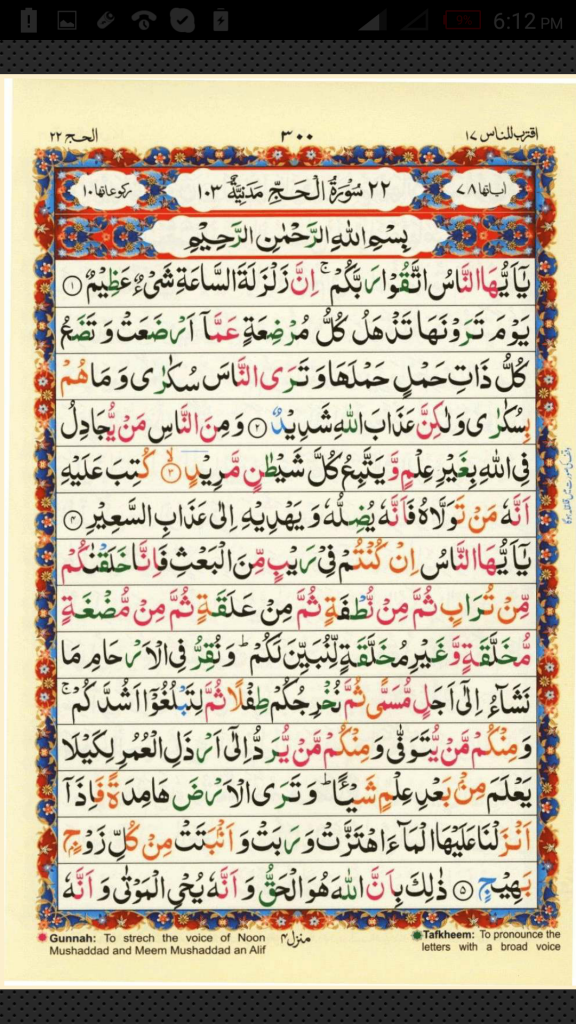 9% 6:12 PM
اقترب للناس ١٧
٣٠٠
الحج ٢٢
اٰیاتها ٧٨
٢٢ سُوْرَةُ الْحَجِّ مَدَنِيَّةٌ ١٠٣
رکوعاتها ١٠
بِسْمِ اللّٰهِ الرَّحْمٰنِ الرَّحِيْمِ
يٰۤاَيُّهَا النَّاسُ اتَّقُوْا رَبَّكُمْ ۚ اِنَّ زَلْزَلَةَ السَّاعَةِ شَىْءٌ عَظِيْمٌ ﴿١﴾
يَوْمَ تَرَوْنَهَا تَذْهَلُ كُلُّ مُرْضِعَةٍ عَمَّاۤ اَرْضَعَتْ وَ تَضَعُ
كُلُّ ذَاتِ حَمْلٍ حَمْلَهَا وَ تَرَى النَّاسَ سُكٰرٰى وَ مَا هُمْ
بِسُكٰرٰى وَ لٰكِنَّ عَذَابَ اللّٰهِ شَدِيْدٌ ﴿٢﴾ وَ مِنَ النَّاسِ مَنْ يُّجَادِلُ
فِى اللّٰهِ بِغَيْرِ عِلْمٍ وَّ يَتَّبِعُ كُلَّ شَيْطٰنٍ مَّرِيْدٍ ۙ﴿٣﴾ كُتِبَ عَلَيْهِ
اَنَّهٗ مَنْ تَوَلَّاهُ فَاَنَّهٗ يُضِلُّهٗ وَ يَهْدِيْهِ اِلٰى عَذَابِ السَّعِيْرِ ﴿٤﴾
يٰۤاَيُّهَا النَّاسُ اِنْ كُنْتُمْ فِىْ رَيْبٍ مِّنَ الْبَعْثِ فَاِنَّا خَلَقْنٰكُمْ
مِّنْ تُرَابٍ ثُمَّ مِنْ نُّطْفَةٍ ثُمَّ مِنْ عَلَقَةٍ ثُمَّ مِنْ مُّضْغَةٍ
مُّخَلَّقَةٍ وَّ غَيْرِ مُخَلَّقَةٍ لِّنُبَيِّنَ لَكُمْ ؕ وَ نُقِرُّ فِى الْاَرْحَامِ مَا
نَشَآءُ اِلٰۤى اَجَلٍ مُّسَمًّى ثُمَّ نُخْرِجُكُمْ طِفْلًا ثُمَّ لِتَبْلُغُوْۤا اَشُدَّكُمْ ۚ
وَ مِنْكُمْ مَّنْ يُّتَوَفّٰى وَ مِنْكُمْ مَّنْ يُّرَدُّ اِلٰۤى اَرْذَلِ الْعُمُرِ لِكَيْلَا
يَعْلَمَ مِنْۢ بَعْدِ عِلْمٍ شَيْـًٔا ؕ وَ تَرَى الْاَرْضَ هَامِدَةً فَاِذَاۤ
اَنْزَلْنَا عَلَيْهَا الْمَآءَ اهْتَزَّتْ وَ رَبَتْ وَ اَنْۢبَتَتْ مِنْ كُلِّ زَوْجٍۭ
بَهِيْجٍ ﴿٥﴾ ذٰلِكَ بِاَنَّ اللّٰهَ هُوَ الْحَقُّ وَ اَنَّهٗ يُحْىِ الْمَوْتٰى وَ اَنَّهٗ
Gunnah: To strech the voice of Noon
Mushaddad and Meem Mushaddad an Alif
منزل ٤
Tafkheem: To pronounce the
letters with a broad voice